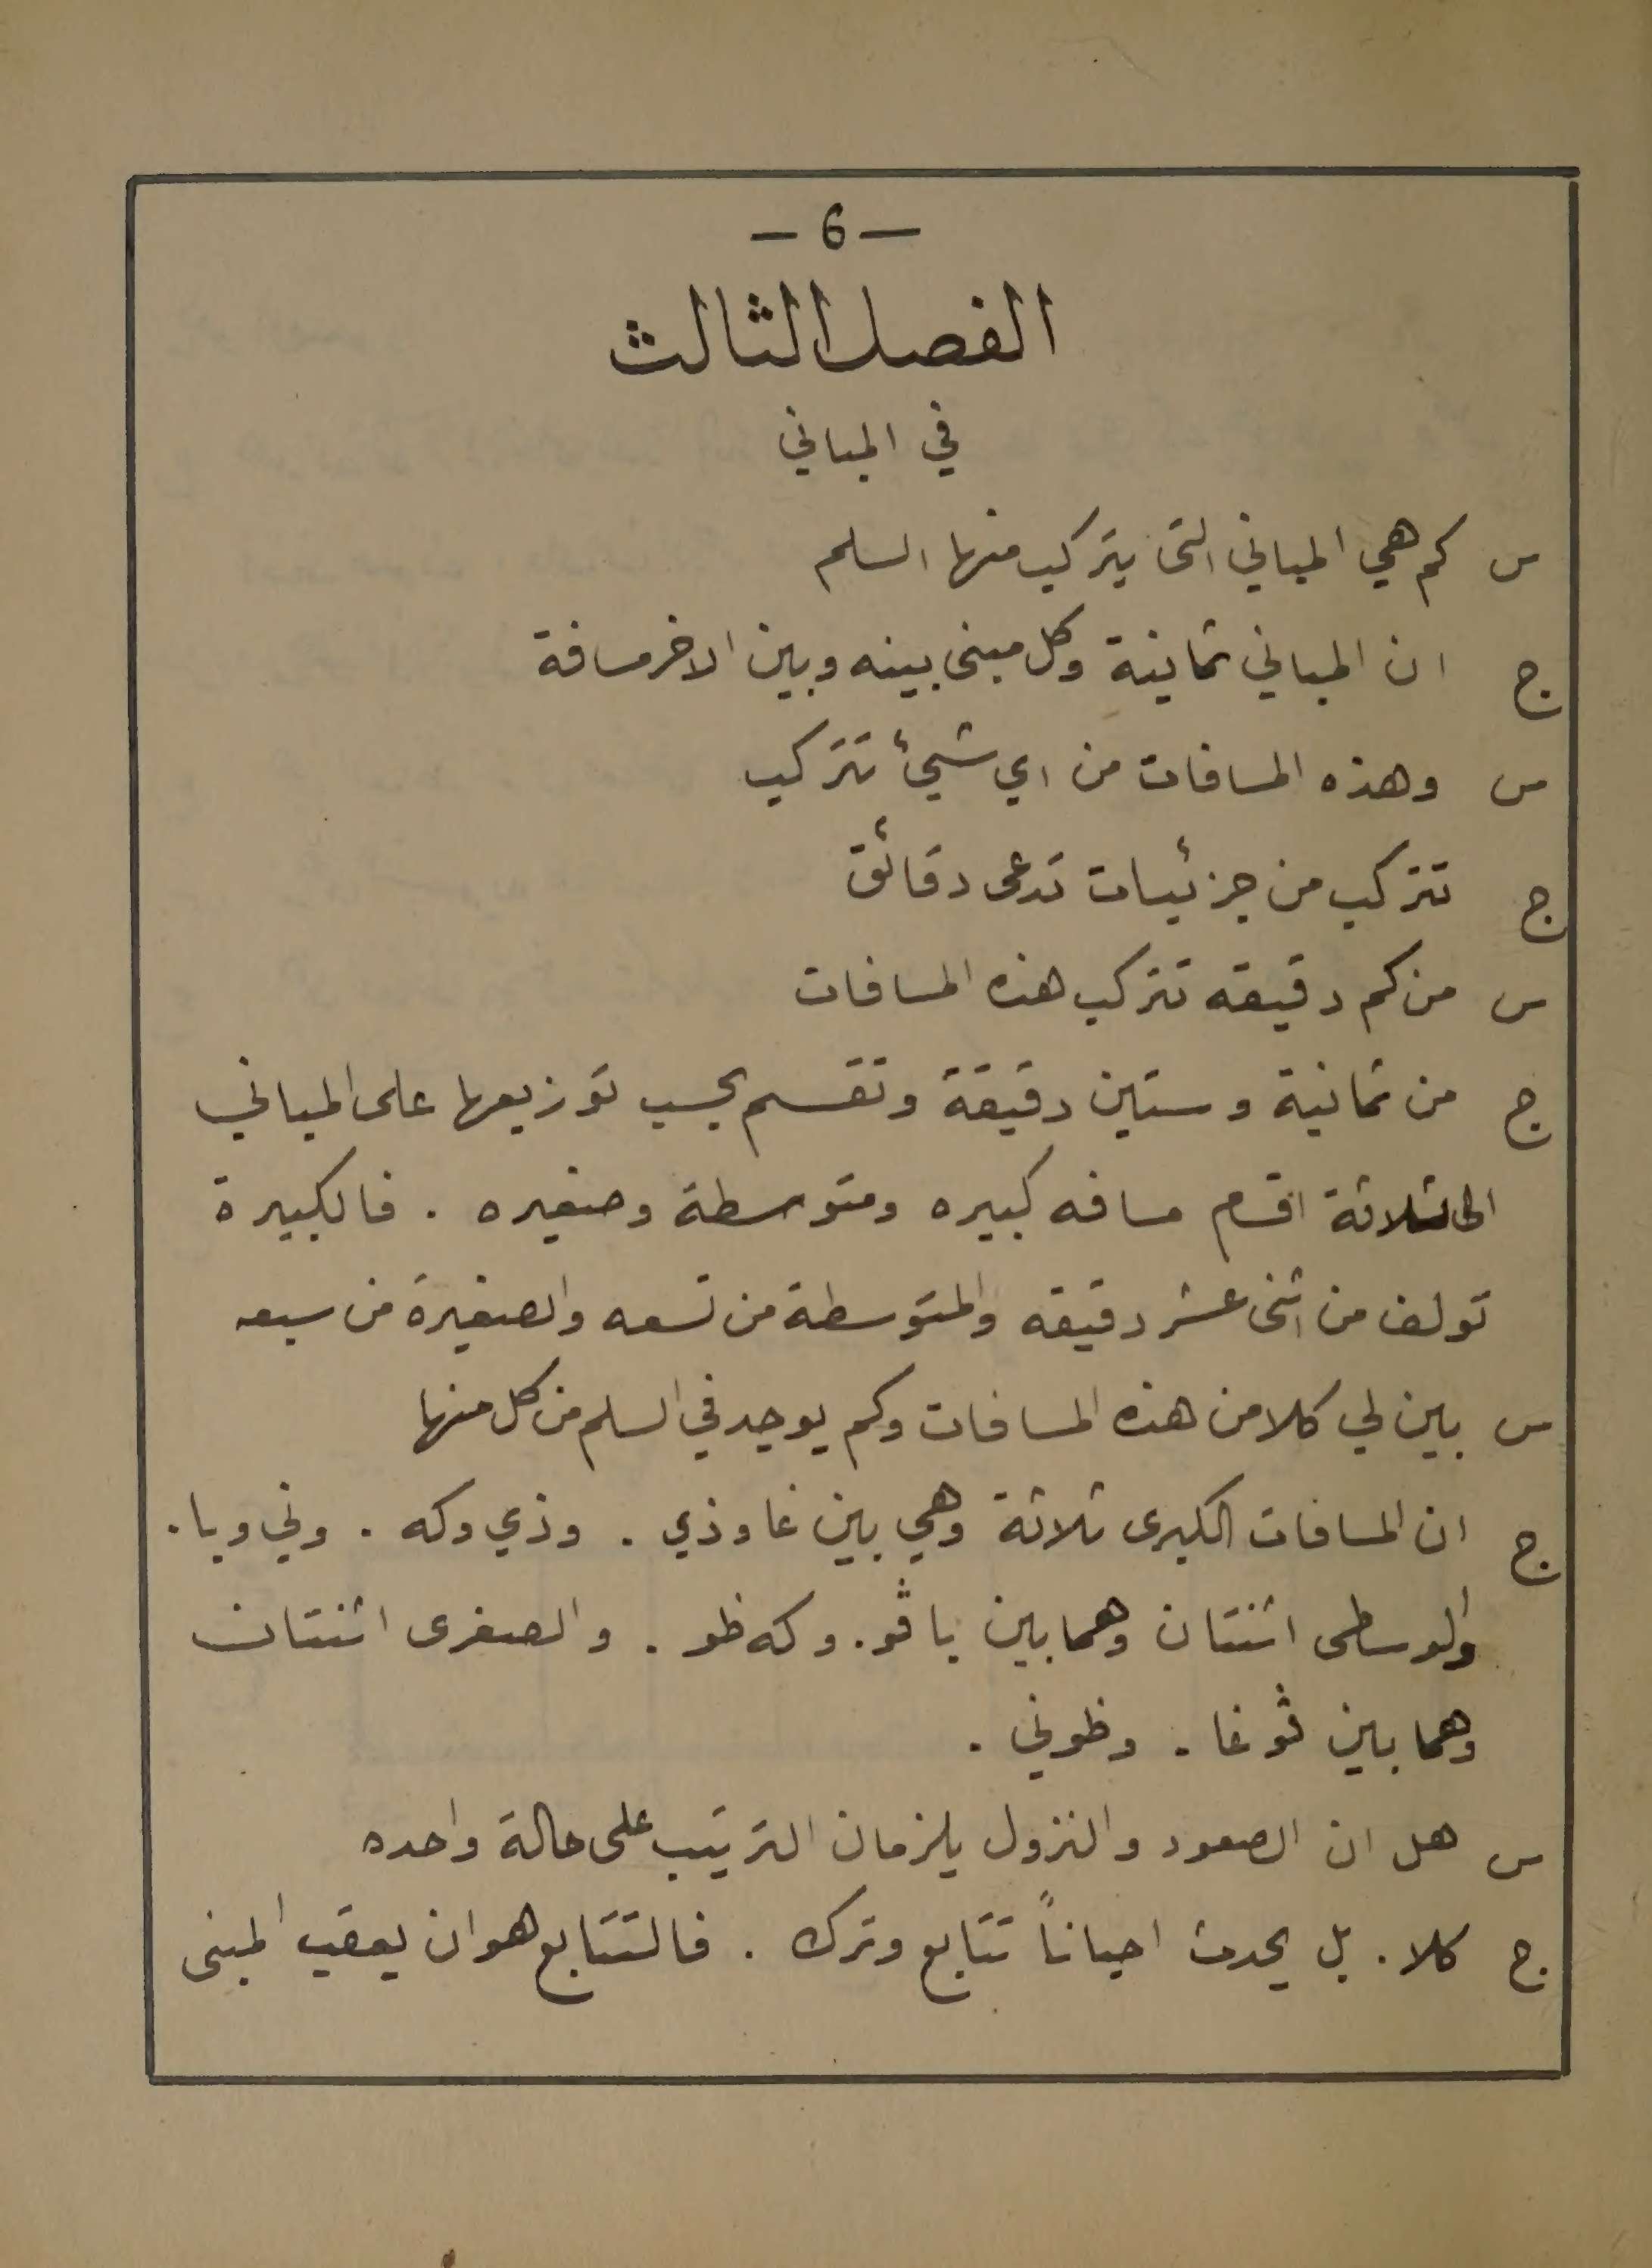 — 6 —
الفصل الثالث
في المباني
س كم هي المباني التى يتركب منها السلم
ج ان المباني ثمانية وكل مبنى بينه وبين الاخر مسافة
س وهذه المسافات من اي شيئ تتركب
ج تتركب من جزئيات تدعى دقائق
س من كم دقيقه تتركب هذه المسافات
ج من ثمانية وستين دقيقة وتقسم بحسب توزيعها على المباني
الى ثلاثة اقسام مسافه كبيره ومتوسطة وصغيره . فالكبيرة
تولف من اثنى عشر دقيقه والمتوسطة من تسعه والصغيرة من سبعه
س بين لي كلا من هذه المسافات وكم يوجد في السلم من كل منها
ج ان المسافات الكبرى ثلاثة وهي بين غا وذي . وذي وكه . وني وبا .
والوسطى اثنتان وهما بين باڤو . وكه ظو . والصغرى اثنتان
وهما بين ڤو غا . وظوني .
س هل ان الصعود والنزول يلزمان الترتيب على حالة واحده
ج كلا . بل يحدث احياناً تتابع وترك . فالتتابع هو ان يعقب المبنى